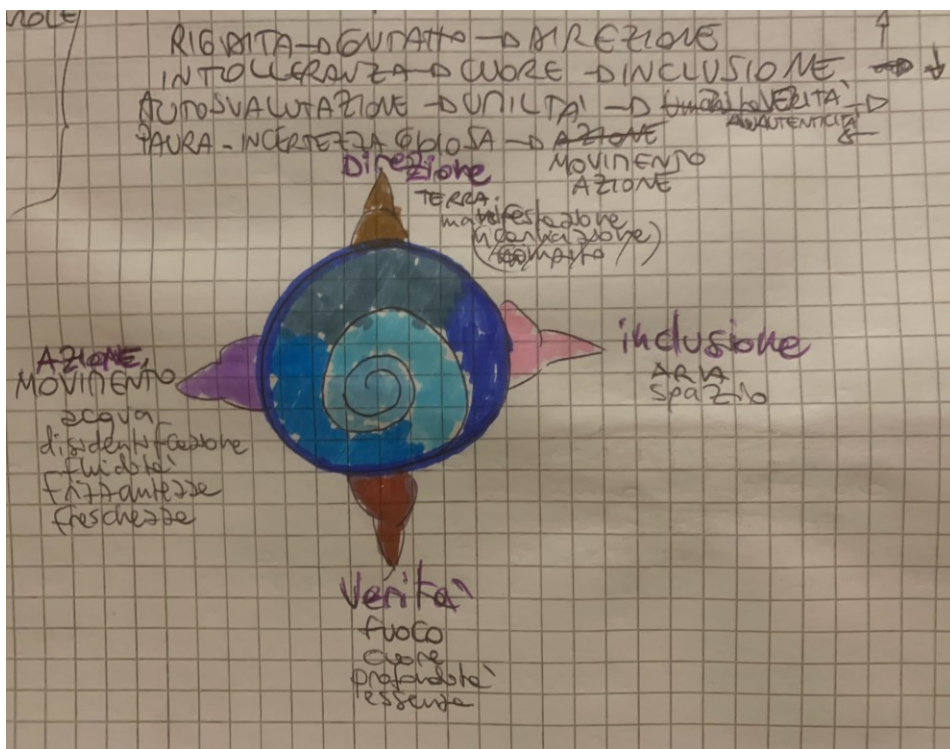 RIGIDITA → CONTATTO → DIREZIONE
INTOLLERANZA → CUORE → INCLUSIONE
AUTOSVALUTAZIONE → UMILTA' → VERITA'
AUTENTICITA'
PAURA - INCERTEZZA → AZIONE
MOVIMENTO
AZIONE
Direzione
TERRA
manifestazione
incarnazione
inclusione
ARIA
SPAZIO
AZIONE,
MOVIMENTO
acqua
disidentificazione
fluidità
frizzantezza
freschezza
Verità
fuoco
cuore
profondità
essenza